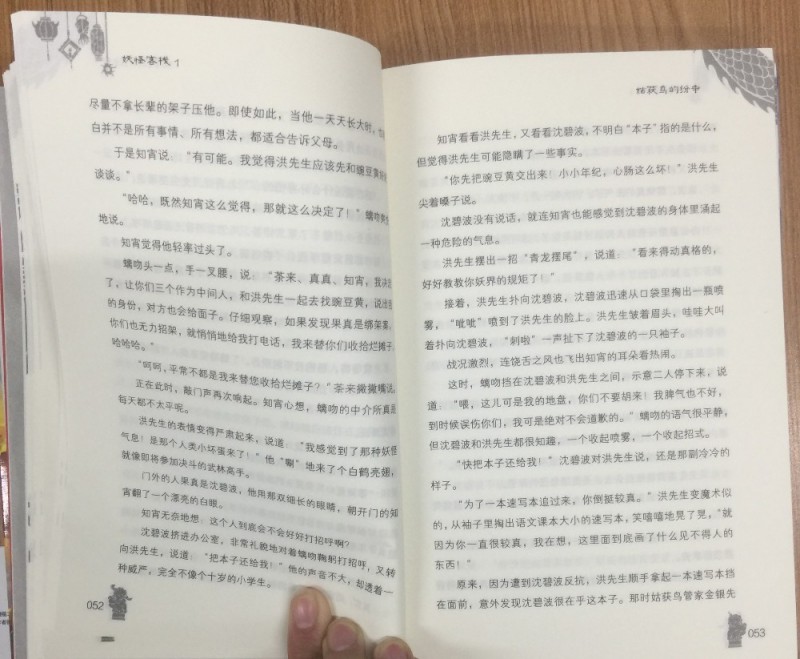 妖怪客栈 1
尽量不拿长辈的架子压他。即使如此，当他一天天长大时，也
白并不是所有事情、所有想法，都适合告诉父母。
于是知宵说：“有可能。我觉得洪先生应该先和豌豆黄好好
谈谈。”
“哈哈，既然知宵这么觉得，那就这么决定了！”螭吻爽快
地说。
知宵觉得他轻率过头了。
螭吻头一点，手一叉腰，说：“茶来、真真、知宵，我决定
了，让你们三个作为中间人，和洪先生一起去找豌豆黄，说出
的身份，对方也会给面子。仔细观察，如果发现果真是绑架案，
你们也无力招架，就悄悄地给我打电话，我来替你们收拾烂摊子。
哈哈哈。”
“呵呵，平常不都是我来替您收拾烂摊子？”茶来撇撇嘴说。
正在此时，敲门声再次响起。知宵心想，螭吻的中介所真是
每天都不太平呢。
洪先生的表情变得严肃起来，说道：“我感觉到了那种妖怪
气息！是那个人类小坏蛋来了！”他“唰”地来了个白鹤亮翅，
就像即将参加决斗的武林高手。
门外的人果真是沈碧波，他用那双细长的眼睛，朝开门的知
宵翻了一个漂亮的白眼。
知宵无奈地想：这个人到底会不会好好打招呼啊？
沈碧波挤进办公室，非常礼貌地对着螭吻鞠躬打招呼，又转
向洪先生，说道：“把本子还给我！”他的声音不大，却透着一
种威严，完全不像个十岁的小学生。
052
姑获鸟的纷争
知宵看看洪先生，又看看沈碧波，不明白“本子”指的是什么，
但觉得洪先生可能隐瞒了一些事实。
“你先把豌豆黄交出来！小小年纪，心肠这么坏！”洪先生
尖着嗓子说。
沈碧波没有说话，就连知宵也能感觉到沈碧波的身体里涌起
一种危险的气息。
洪先生摆出一招“青龙摆尾”，说道：“看来得动真格的，
好好教教你妖界的规矩了！”
接着，洪先生扑向沈碧波，沈碧波迅速从口袋里掏出一瓶喷
雾，“呲呲”喷到了洪先生的脸上。洪先生皱着眉头，哇哇大叫
着扑向沈碧波，“刺啦”一声扯下了沈碧波的一只袖子。
战况激烈，连饶舌之风也飞出知宵的耳朵看热闹。
这时，螭吻挡在沈碧波和洪先生之间，示意二人停下来，说
道：“喂，这儿可是我的地盘，你们不要胡来！我脾气也不好，
到时候误伤你们，我可是绝对不会道歉的。”螭吻的语气很平静，
但沈碧波和洪先生都很知趣，一个收起喷雾，一个收起招式。
“快把本子还给我！”沈碧波对洪先生说，还是那副冷冷的
样子。
“为了一本速写本追过来，你倒挺较真。”洪先生变魔术似
的，从袖子里掏出语文课本大小的速写本，笑嘻嘻地晃了晃，“就
因为你一直很较真，我在想，这里面到底画了什么见不得人的
东西！”
原来，因为遭到沈碧波反抗，洪先生顺手拿起一本速写本挡
在面前，意外发现沈碧波很在乎这本子。那时姑获鸟管家金银先
053